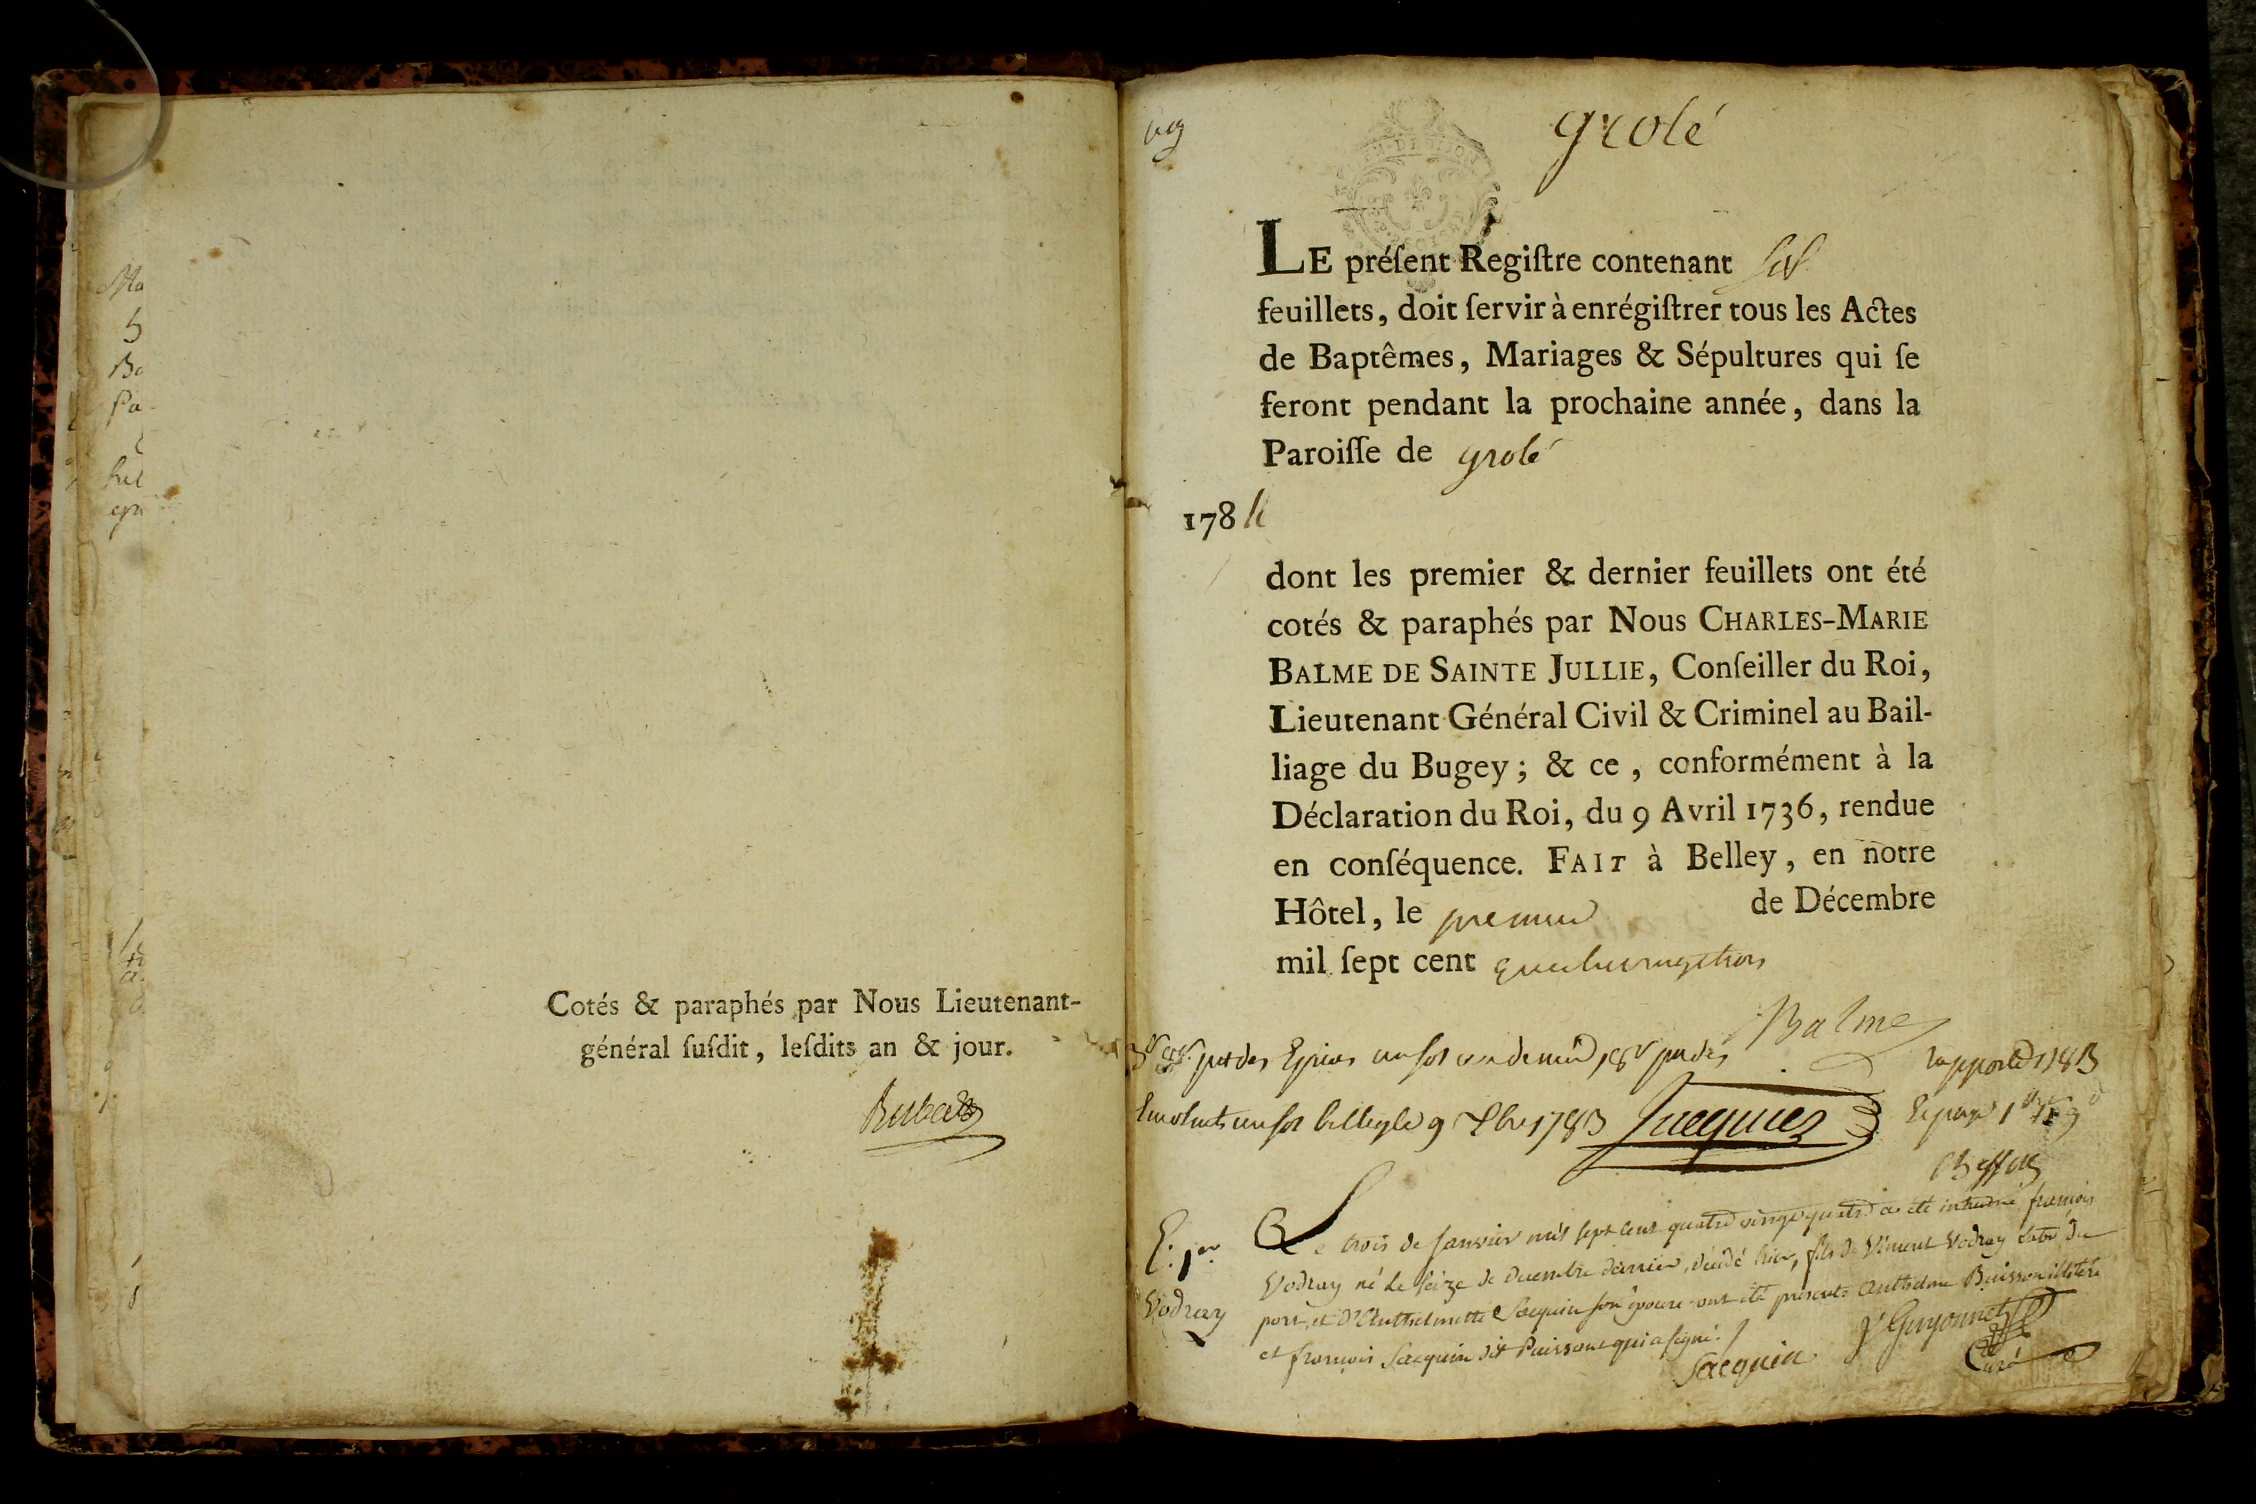 Cotés & paraphés par Nous Lieutenant-
général ſuſdit, leſdits an & jour.
grolé
LE préſent Regiſtre contenant six
feuillets, doit ſervir à enrégiſtrer tous les Actes
de Baptêmes, Mariages & Sépultures qui ſe
feront pendant la prochaine année, dans la
Paroiſſe de grolé
1784
dont les premier & dernier feuillets ont été
cotés & paraphés par Nous CHARLES-MARIE
BALME DE SAINTE JULLIE, Conſeiller du Roi,
Lieutenant Général Civil & Criminel au Bail-
liage du Bugey; & ce, conformément à la
Déclaration du Roi, du 9 Avril 1736, rendue
en conſéquence. FAIT à Belley, en notre
Hôtel, le premier de Décembre
mil ſept cent quatrevingt trois
Balme
rapporté 1783
un sol belley le 9 Xbre 1783 Jacquier
E: 1er
Vodray
Le trois de Janvier mil sept cent quatre vingt quatre a été inhumé françois
Vodray né le seize de decembre dernier, décédé hier, fils de Vincent Vodray du
port, et d'Anthelmette Jacquin son épouse ont été présents Anthelme Buisson illitéré
et françois Jacquin dit qui a signé.
Jacquin Guyonnet
Curé